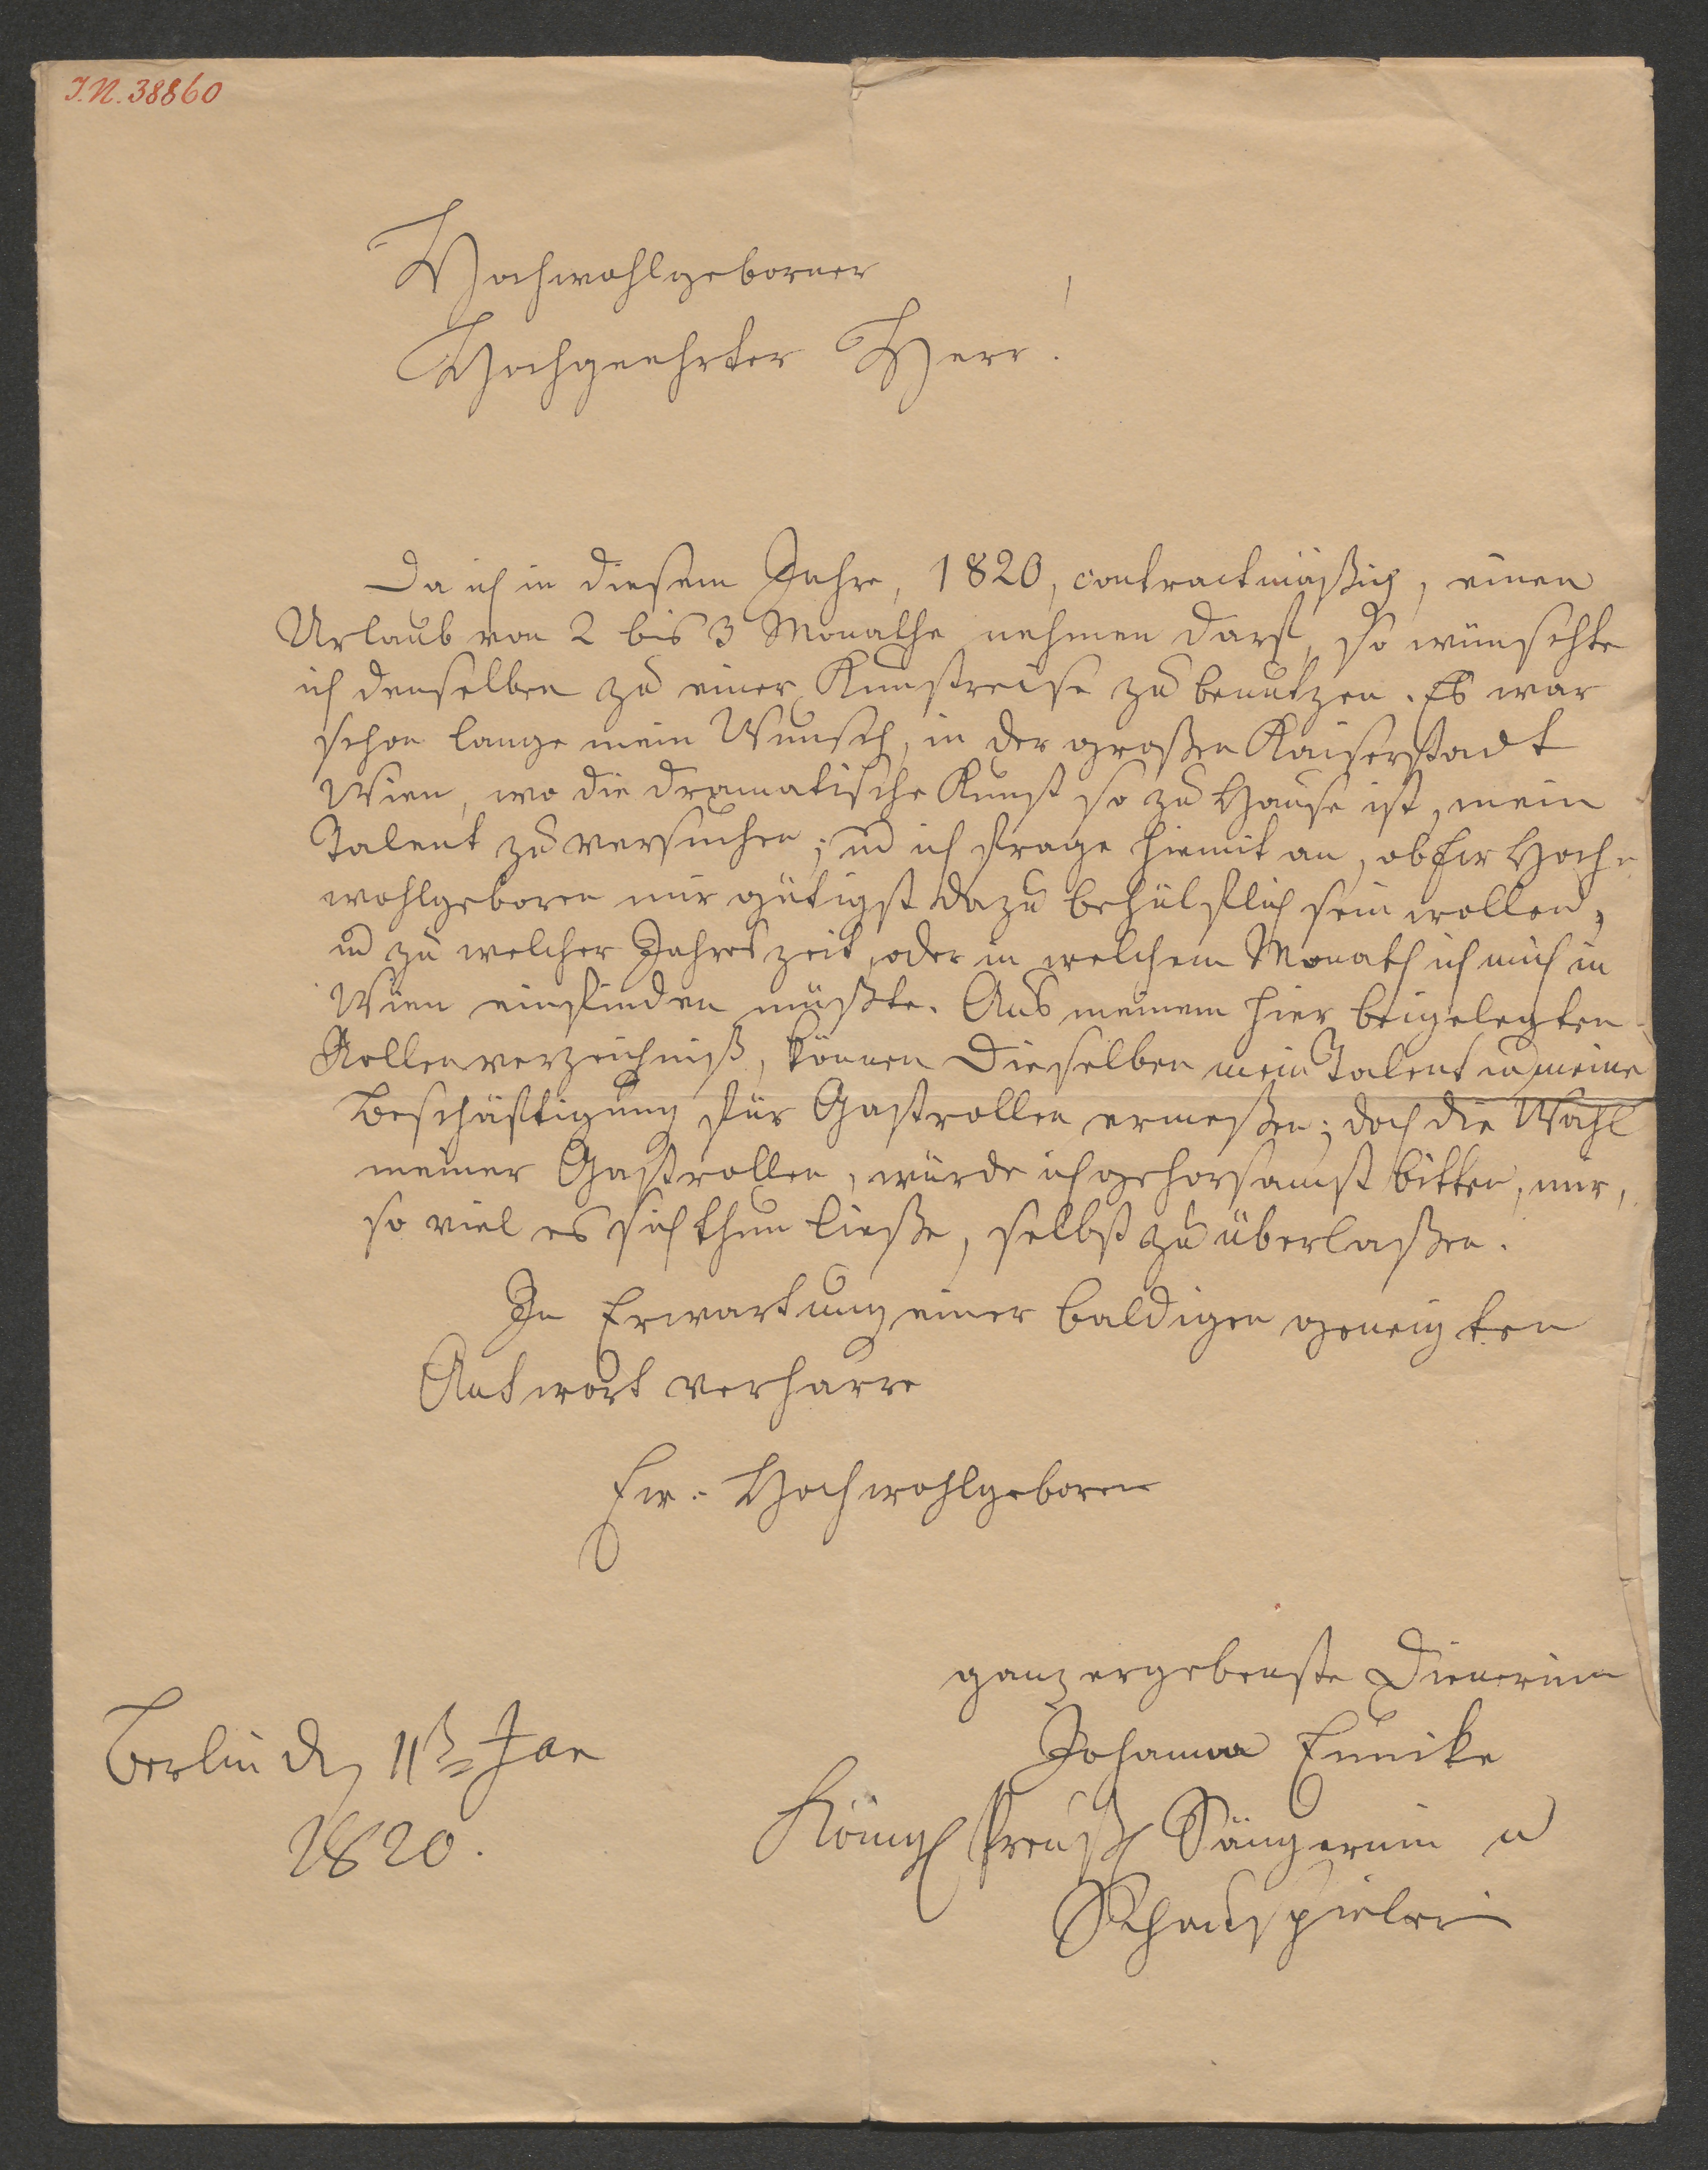 I.N. 38860
Hochwohlgeborner
Hochgeehrter Herr!
Da ich in diesem Jahre, 1820, contractmäßig, einen
Urlaub von 2 bis 3 Monathe nehmen darf, so wünschte
ich denselben zu einer Kunstreise zu benutzen. Es war
schon lange mein Wunsch, in der großen Kaiserstadt
Wien, wo die dramatische Kunst so zu Hause ist, mein
Talent zu versuchen; und ich frage hiemit an, ob Ew Hoch-
wohlgeboren mir gütigst dazu behülflich sein wollen,
und zu welcher Jahreszeit, oder in welchem Monath ich mich in
Wien einfinden müßte. Aus meinem hier beigelegten
Rollenverzeichniß, können Dieselben mein Talent und meine
Beschäftigung für Gastrollen ermeßen; doch die Wahl
meiner Gastrollen, würde ich gehorsamst bitten, mir,
so viel es sich thun ließe, selbst zu überlaßen.
In Erwartung einer baldigen geneigten
Antwort verharre
Ew. Hochwohlgeboren
ganz ergebenste Dienerinn
Johanna Eunike
Königl Preuß Sängerinn u
Schauspielerin
Berlin den 11ten Jan
1820.